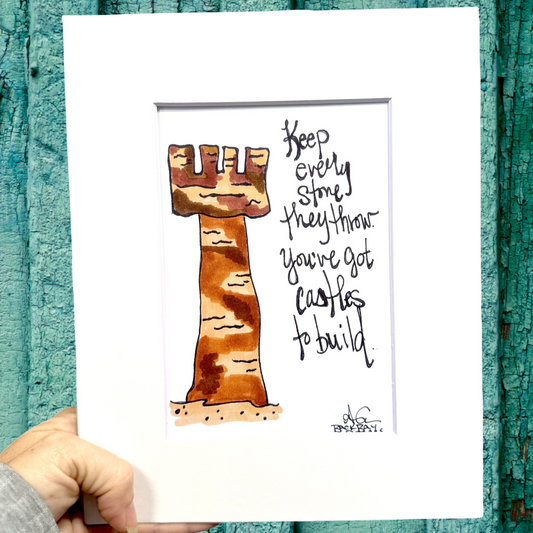 Keep
every
stone
they throw.
You've got
castles
to build.